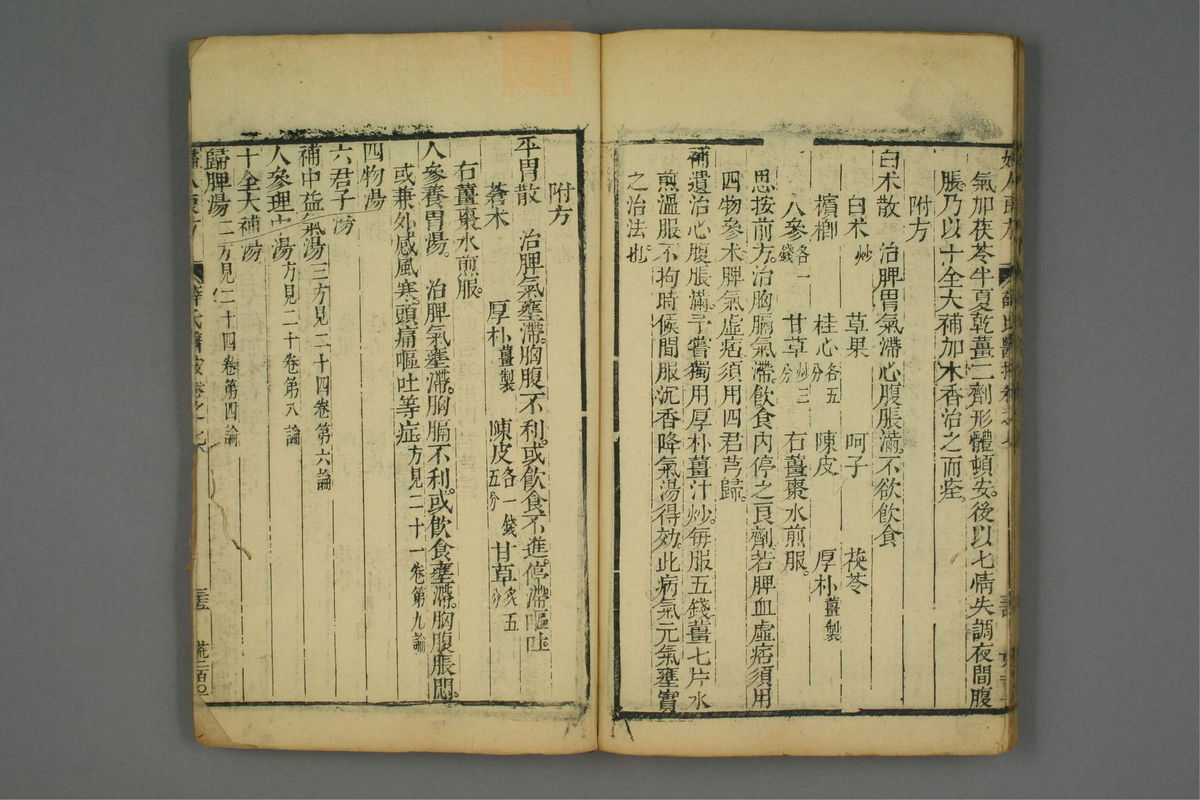 氣加茯苓半夏乾薑二劑形體頓安後以七情失調夜間腹
脹乃以十全大補加木香治之而痊
附方
白术散 治脾胃氣滯心腹脹滿不欲飲食
白术炒 草果 呵子 茯苓
檳榔 桂心各五分 陳皮 厚朴薑製
人參各一錢 甘草炒三分 右薑棗水煎服
思按前方治胸膈氣滯飲食內停之良劑若脾血虛痞須用
四物參术脾氣虛痞須用四君芎歸
補遺治心腹脹滿予嘗獨用厚朴薑汁炒每服五錢薑七片水
煎溫服不拘時候間服沉香降氣湯得効此病氣元氣壅實
之治法也
附方
平胃散 治脾氣壅滯胸腹不利或飲食不進停滯嘔吐
蒼术 厚朴薑製 陳皮各一錢五分 甘草炙五分
右薑棗水煎服
人參養胃湯 治脾氣壅滯胸膈不利或飲食壅滯胸腹脹悶
或兼外感風寒頭痛嘔吐等症方見二十一卷第九論
四物湯
六君子湯
補中益氣湯三方見二十四卷第六論
人參理中湯方見二十卷第八論
十全大補湯
歸脾湯二方見二十四卷第四論
薛氏醫按卷之七